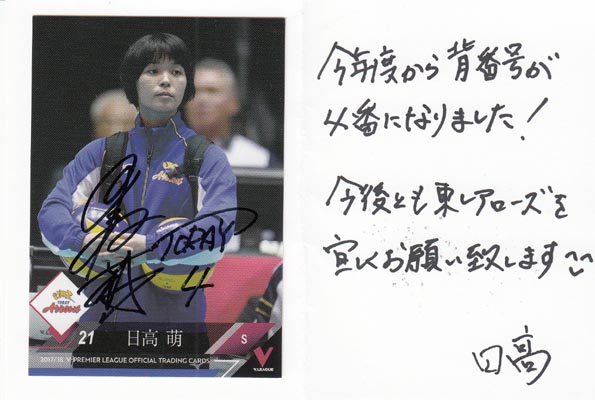 TORAY
Arrows
TORAY
4
TORAY
Arrows
V.LEAGUE
21 日高 萌 S
2017/18 V・PREMIER LEAGUE OFFICIAL TRADING CARDS
V.LEAGUE
今年度から背番号が
4番になりました!
今後とも東レアローズを
宜しくお願い致します
日高